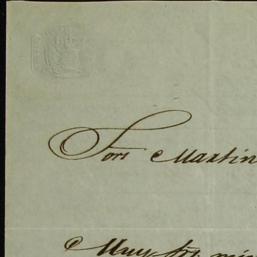 Sor Martin
Muy Sr. mio